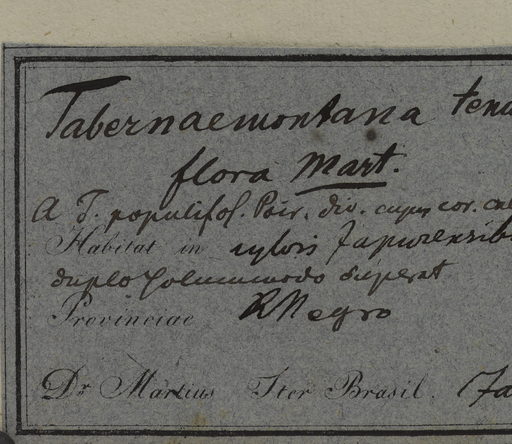 Tabernaemontana tenu
flora Mart.
A T. populifol. Poir. div. cujus cor. cal
Habitat in sylvis Japurensib
duplo superat
Provinciae R Negro
Dr. Martius Iter Brasil. Ja